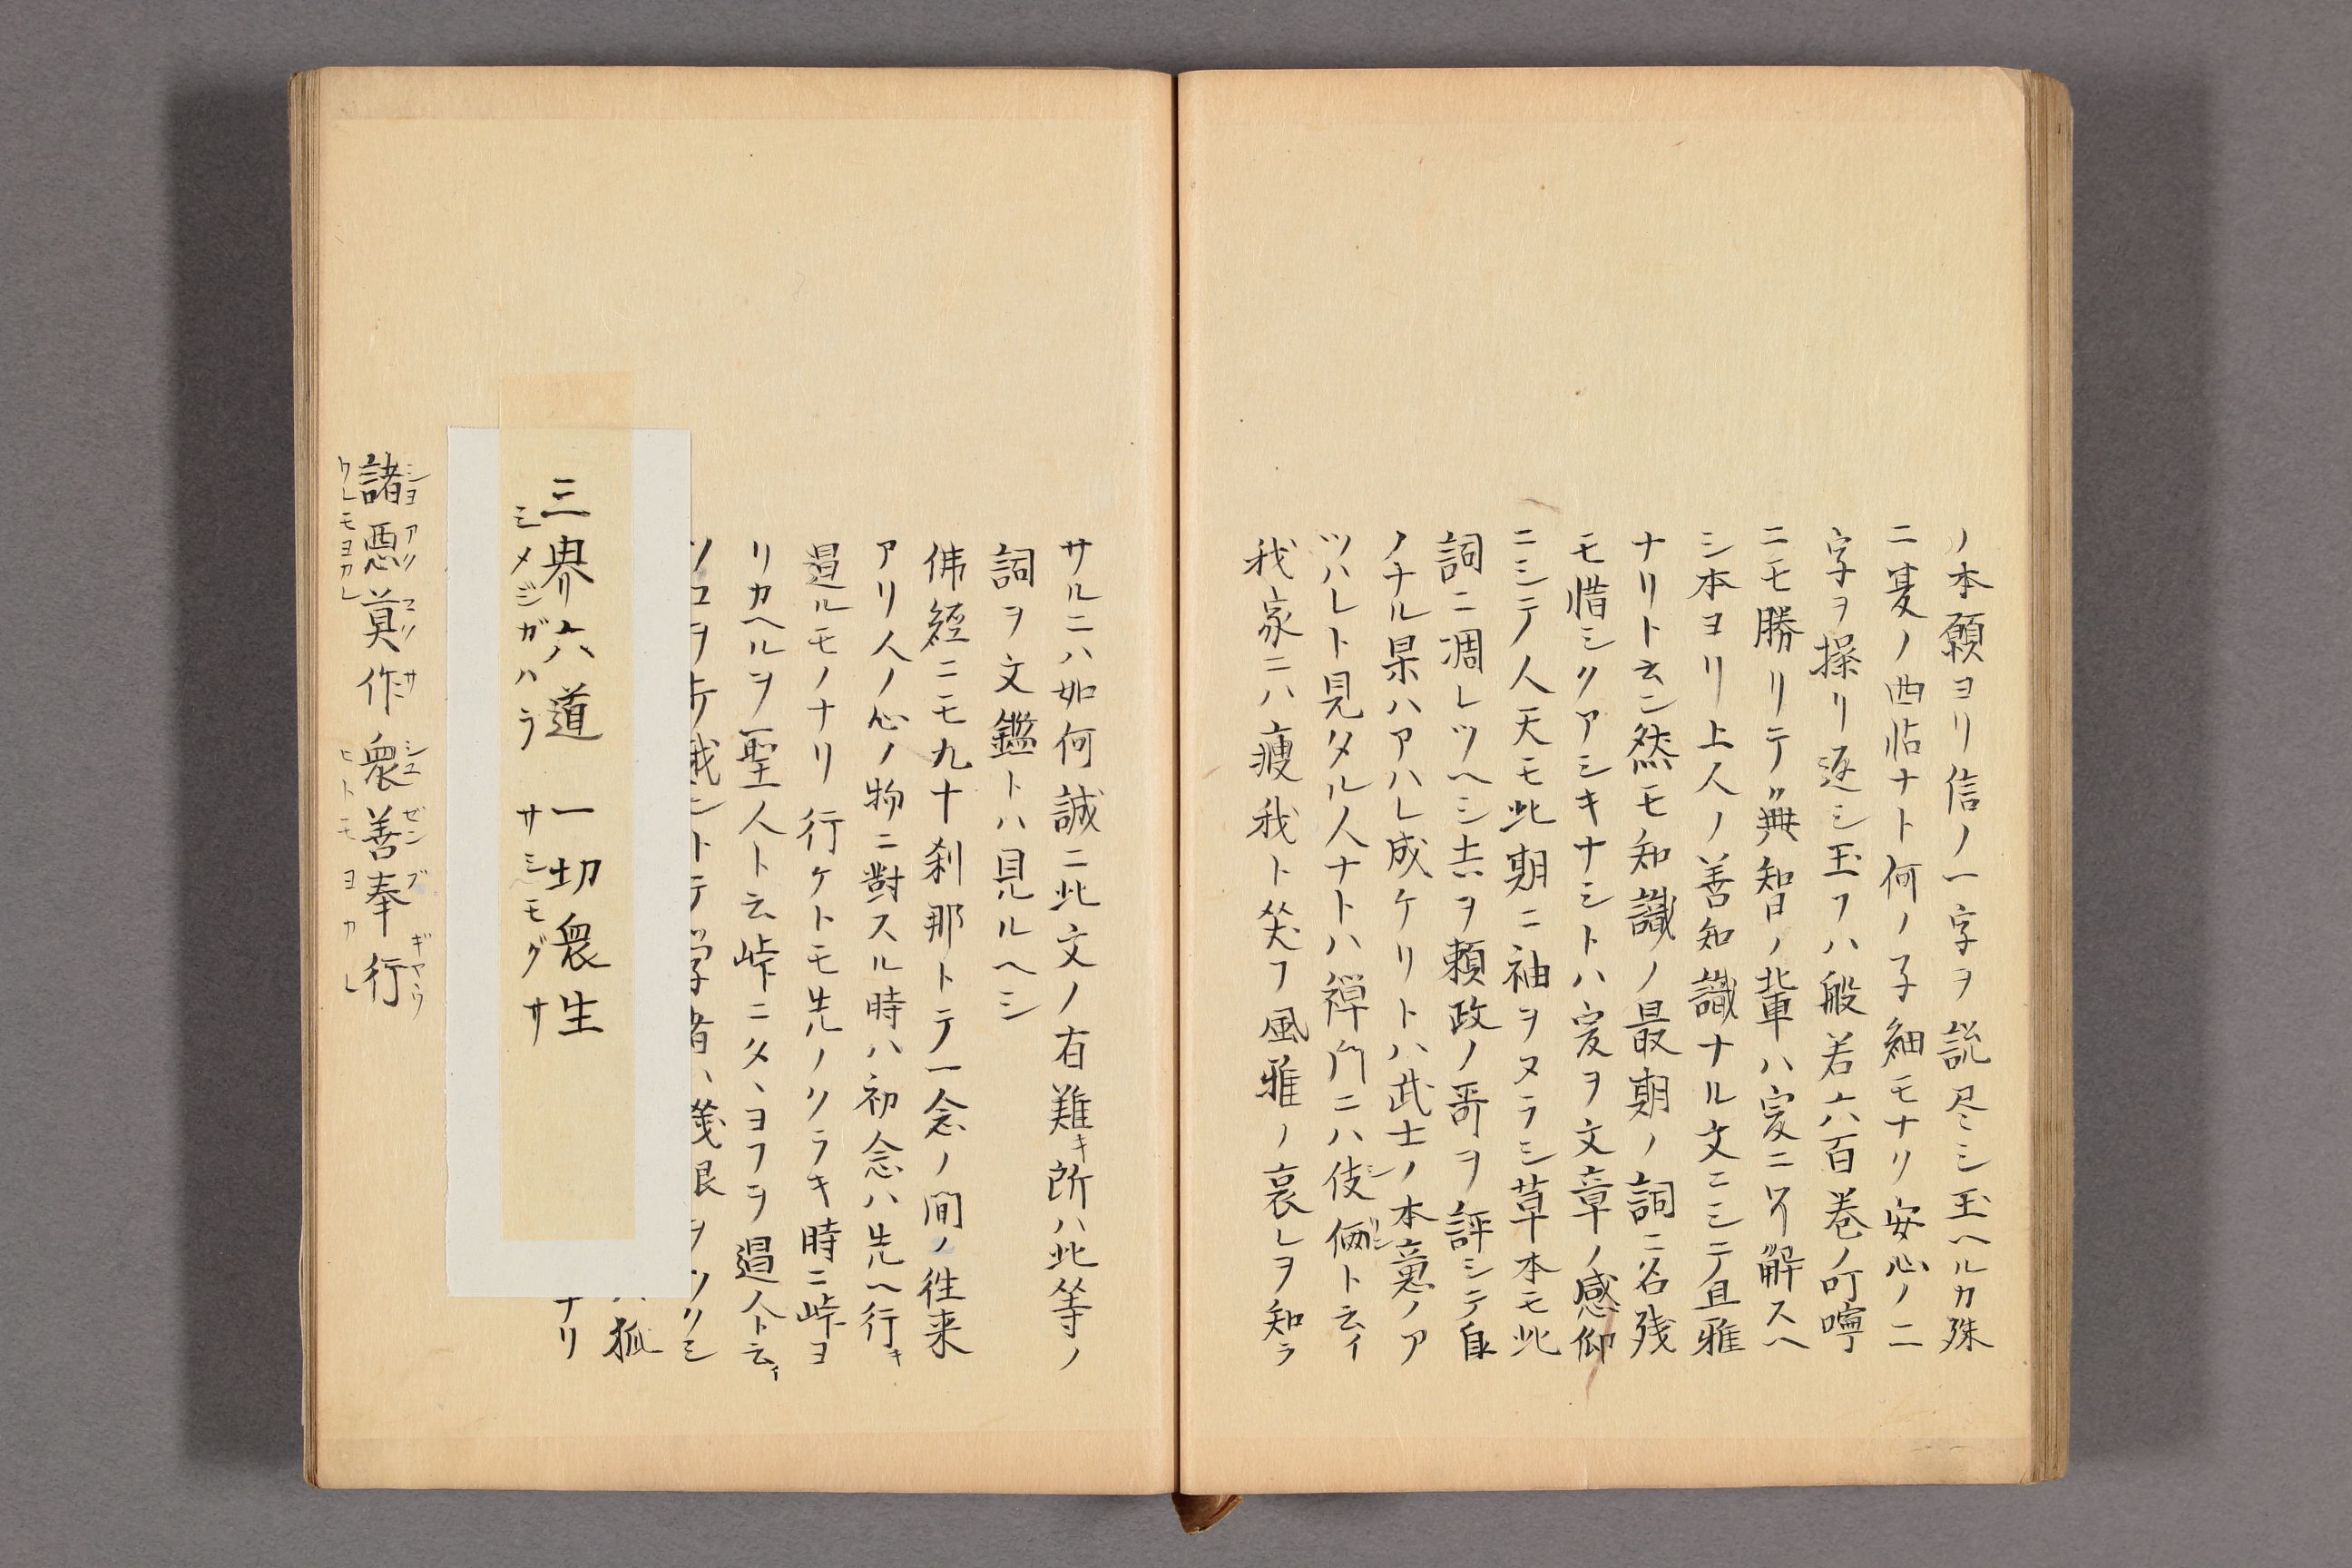 ノ本願ヨリ信ノ一字ヲ説尽シ玉ヘルカ殊
ニ夏ノ西帖ナト何ノ子細モナリ安心ノ二
字ヲ操リ返シ玉フハ般若六百巻ノ叮嚀
ニモ勝リテ無智ノ輩ハ爰ニ解スヘ
シ本ヨリ上人ノ善知識ナル文ニシテ且雅
ナリト云ン然モ知識ノ最期ノ詞ニ名残
モ惜シクアシキナシトハ爰ヲ文章ノ感仰
ニシテ人天モ此期ニ袖ヲヌラシ草本モ此
詞ニ凋レツヘシ古ヲ頼政ノ哥ヲ評シテ自
ノナル果ハアハレ成ケリトハ武士ノ本意ノア
ツハレト見タル人ナトハ禅門ニハ伎倆ト云イ
我家ニハ痩我ト笑フ風雅ノ哀レヲ知ラ
サルニハ如何誠ニ此文ノ有難キ所ハ此等ノ
詞ヲ文鑑トハ見ルヘシ
佛経ニモ九十刹那トテ一念ノ間ノ往来
アリ人ノ心ノ物ニ對スル時ハ初念ハ先ヘ行キ
過ルモノナリ行ケトモ先ノクラキ時ニ峠ヨ
リカヘルヲ聖人ト云峠ニタヽヨフヲ過人ト云イ
トテ学者ハ ヲソリシ
狐
ナリ
三界六道一切衆生
ミメジガハラサシモグサ
諸悪莫作衆善奉行
シヨアクマクサシユゼンブギヤウ
クレモヨカレヒトモヨカレ